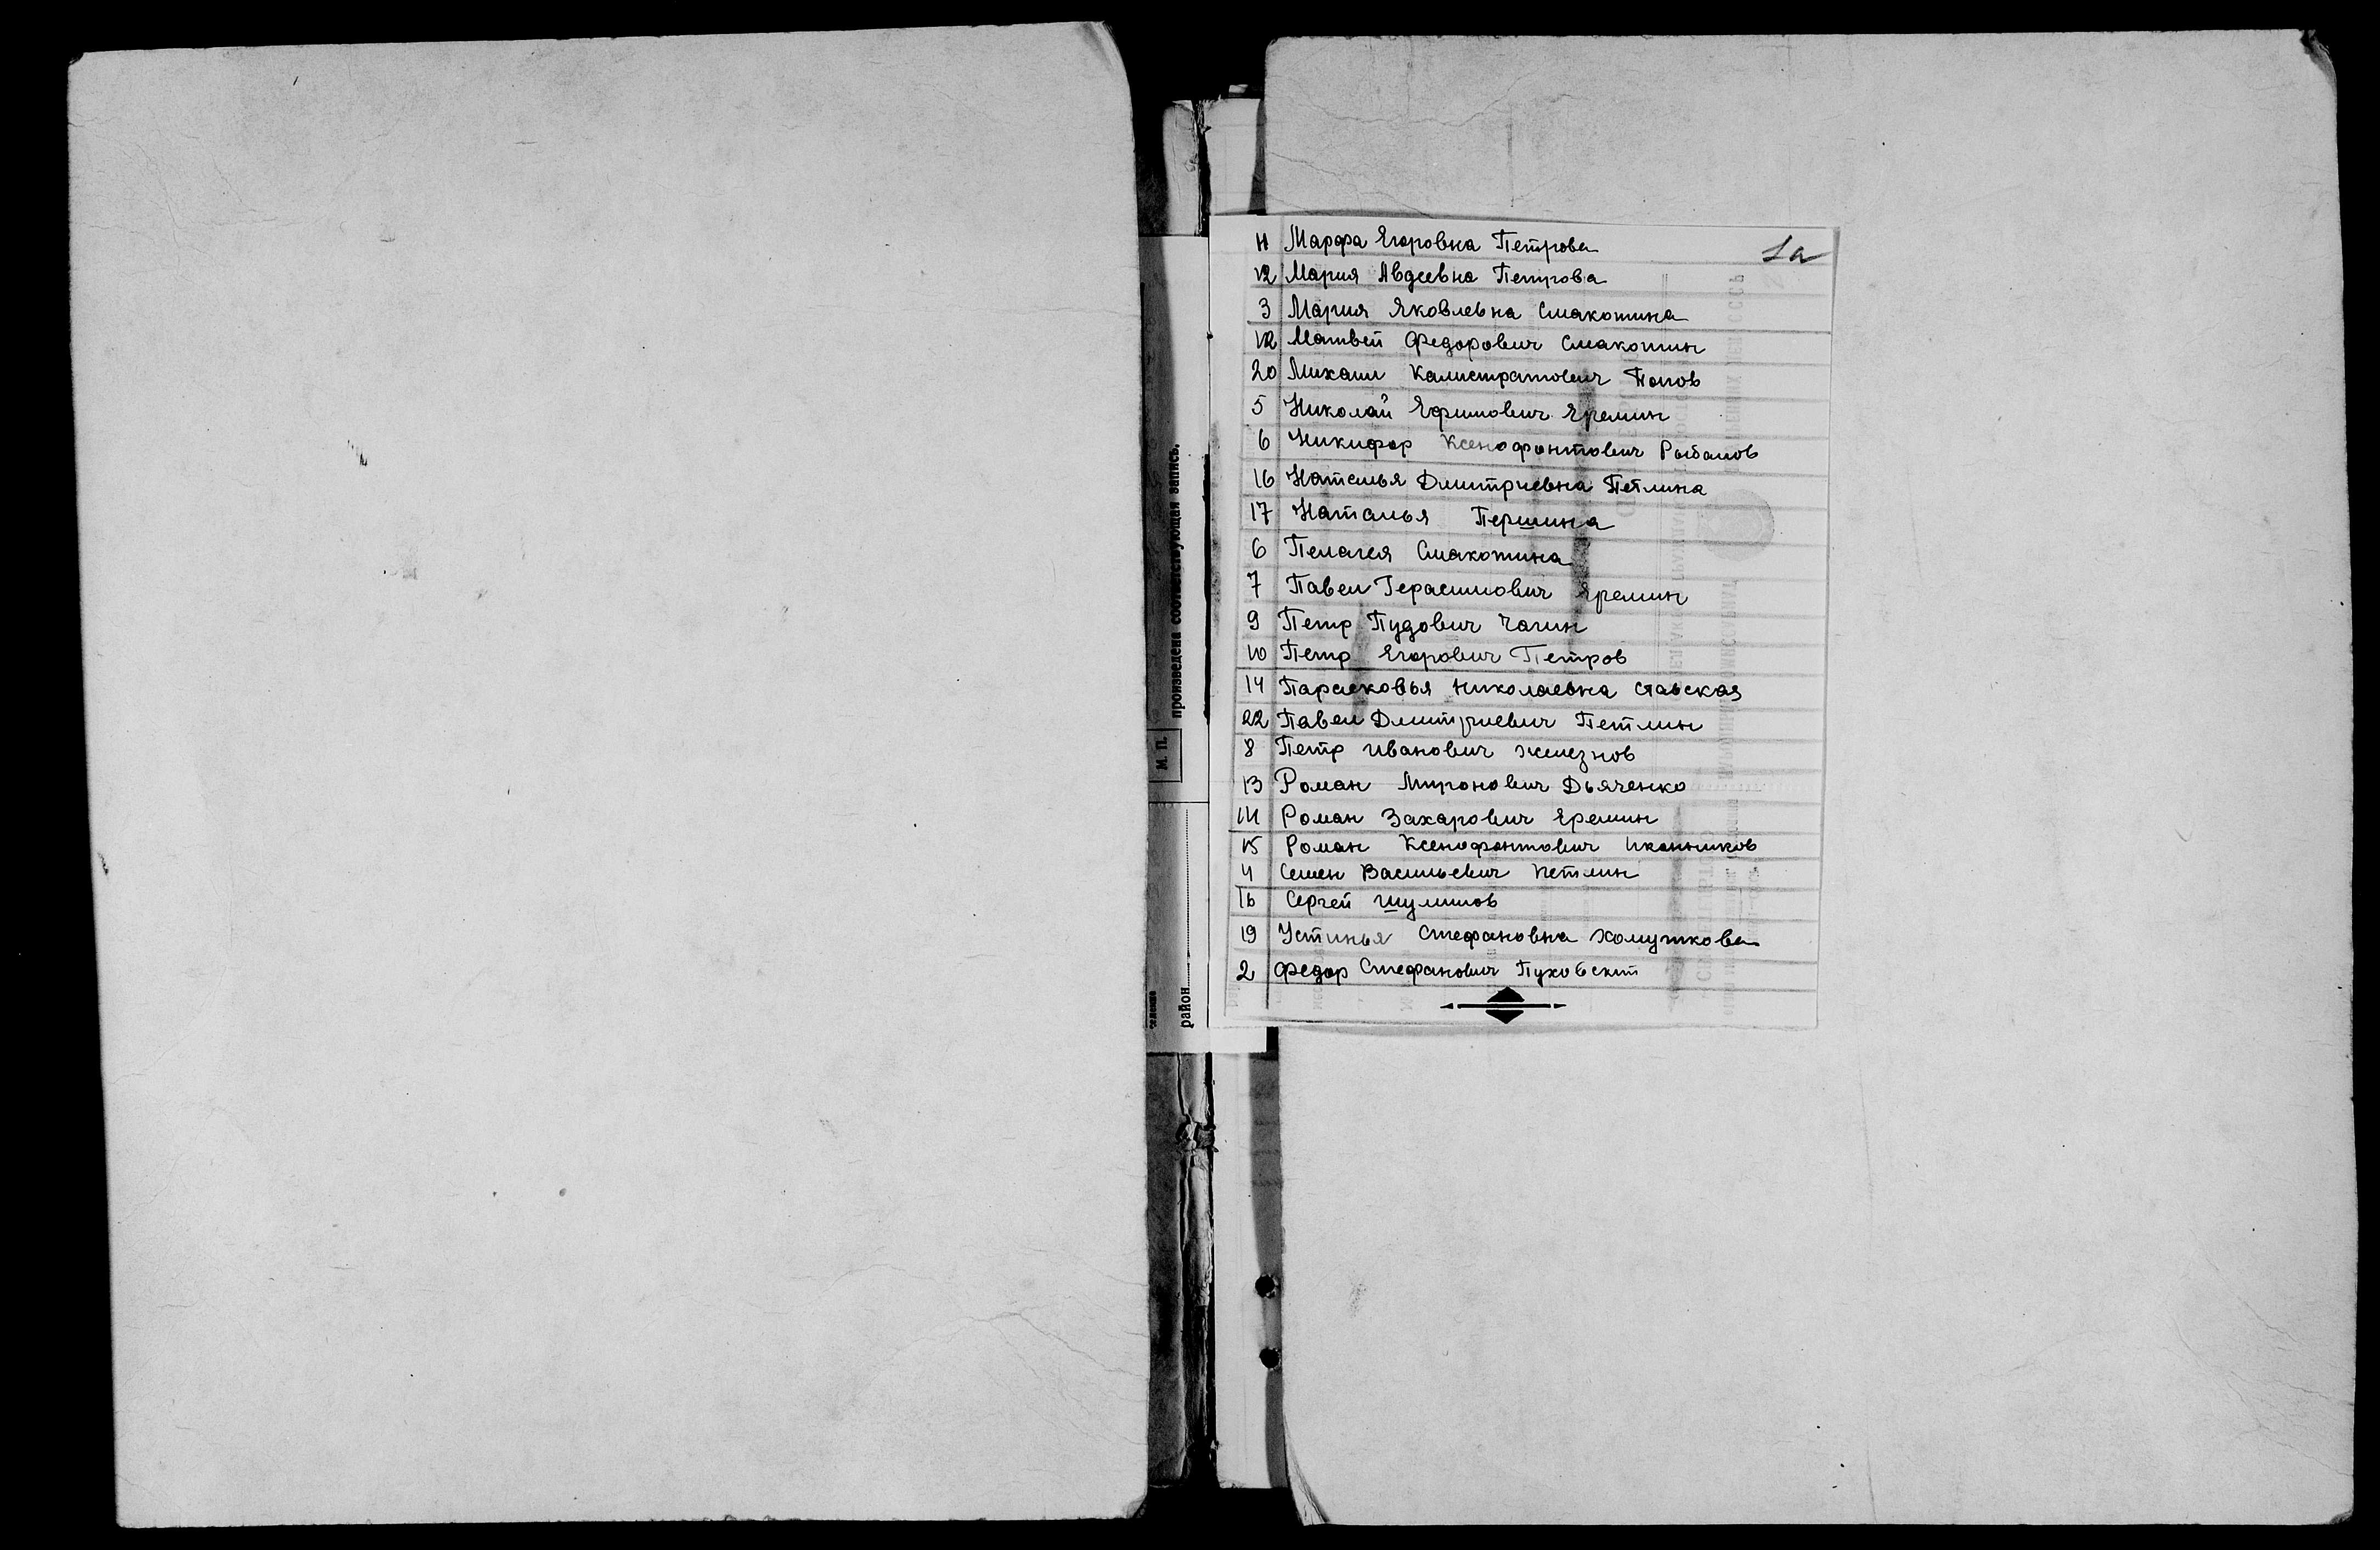 1а
11 Марфа Егоровна Петрова
12 Мария Авдеевна Петрова
3 Мария Яковлевна Смакотина
12 Матвей Федорович Смакотин
20 Михаил Калистратович Попов
5 Николай Ефимович Еремин
6 Никифор Ксенофонтович Рыбалов
16 Наталья Дмитриевна Петлина
17 Наталья Першина
6 Пелагея Смакотина
7 Павел Герасимович Еремин
9 Петр Пудович Чагин
10 Петр Егорович Петров
14 Парасковья Николаевна Ставская
22 Павел Дмитриевич Петлин
8 Петр Иванович Железнов
13 Роман Миронович Дьяченко
14 Роман Захарович Еремин
15 Роман Ксенофонтович Иконников
4 Семен Васильевич Петлин
16 Сергей Шумилов
19 Устинья Стефановна Хомуткова
2 Федор Стефанович Пуховский
произведена соответствующая запись.
М. П.
район